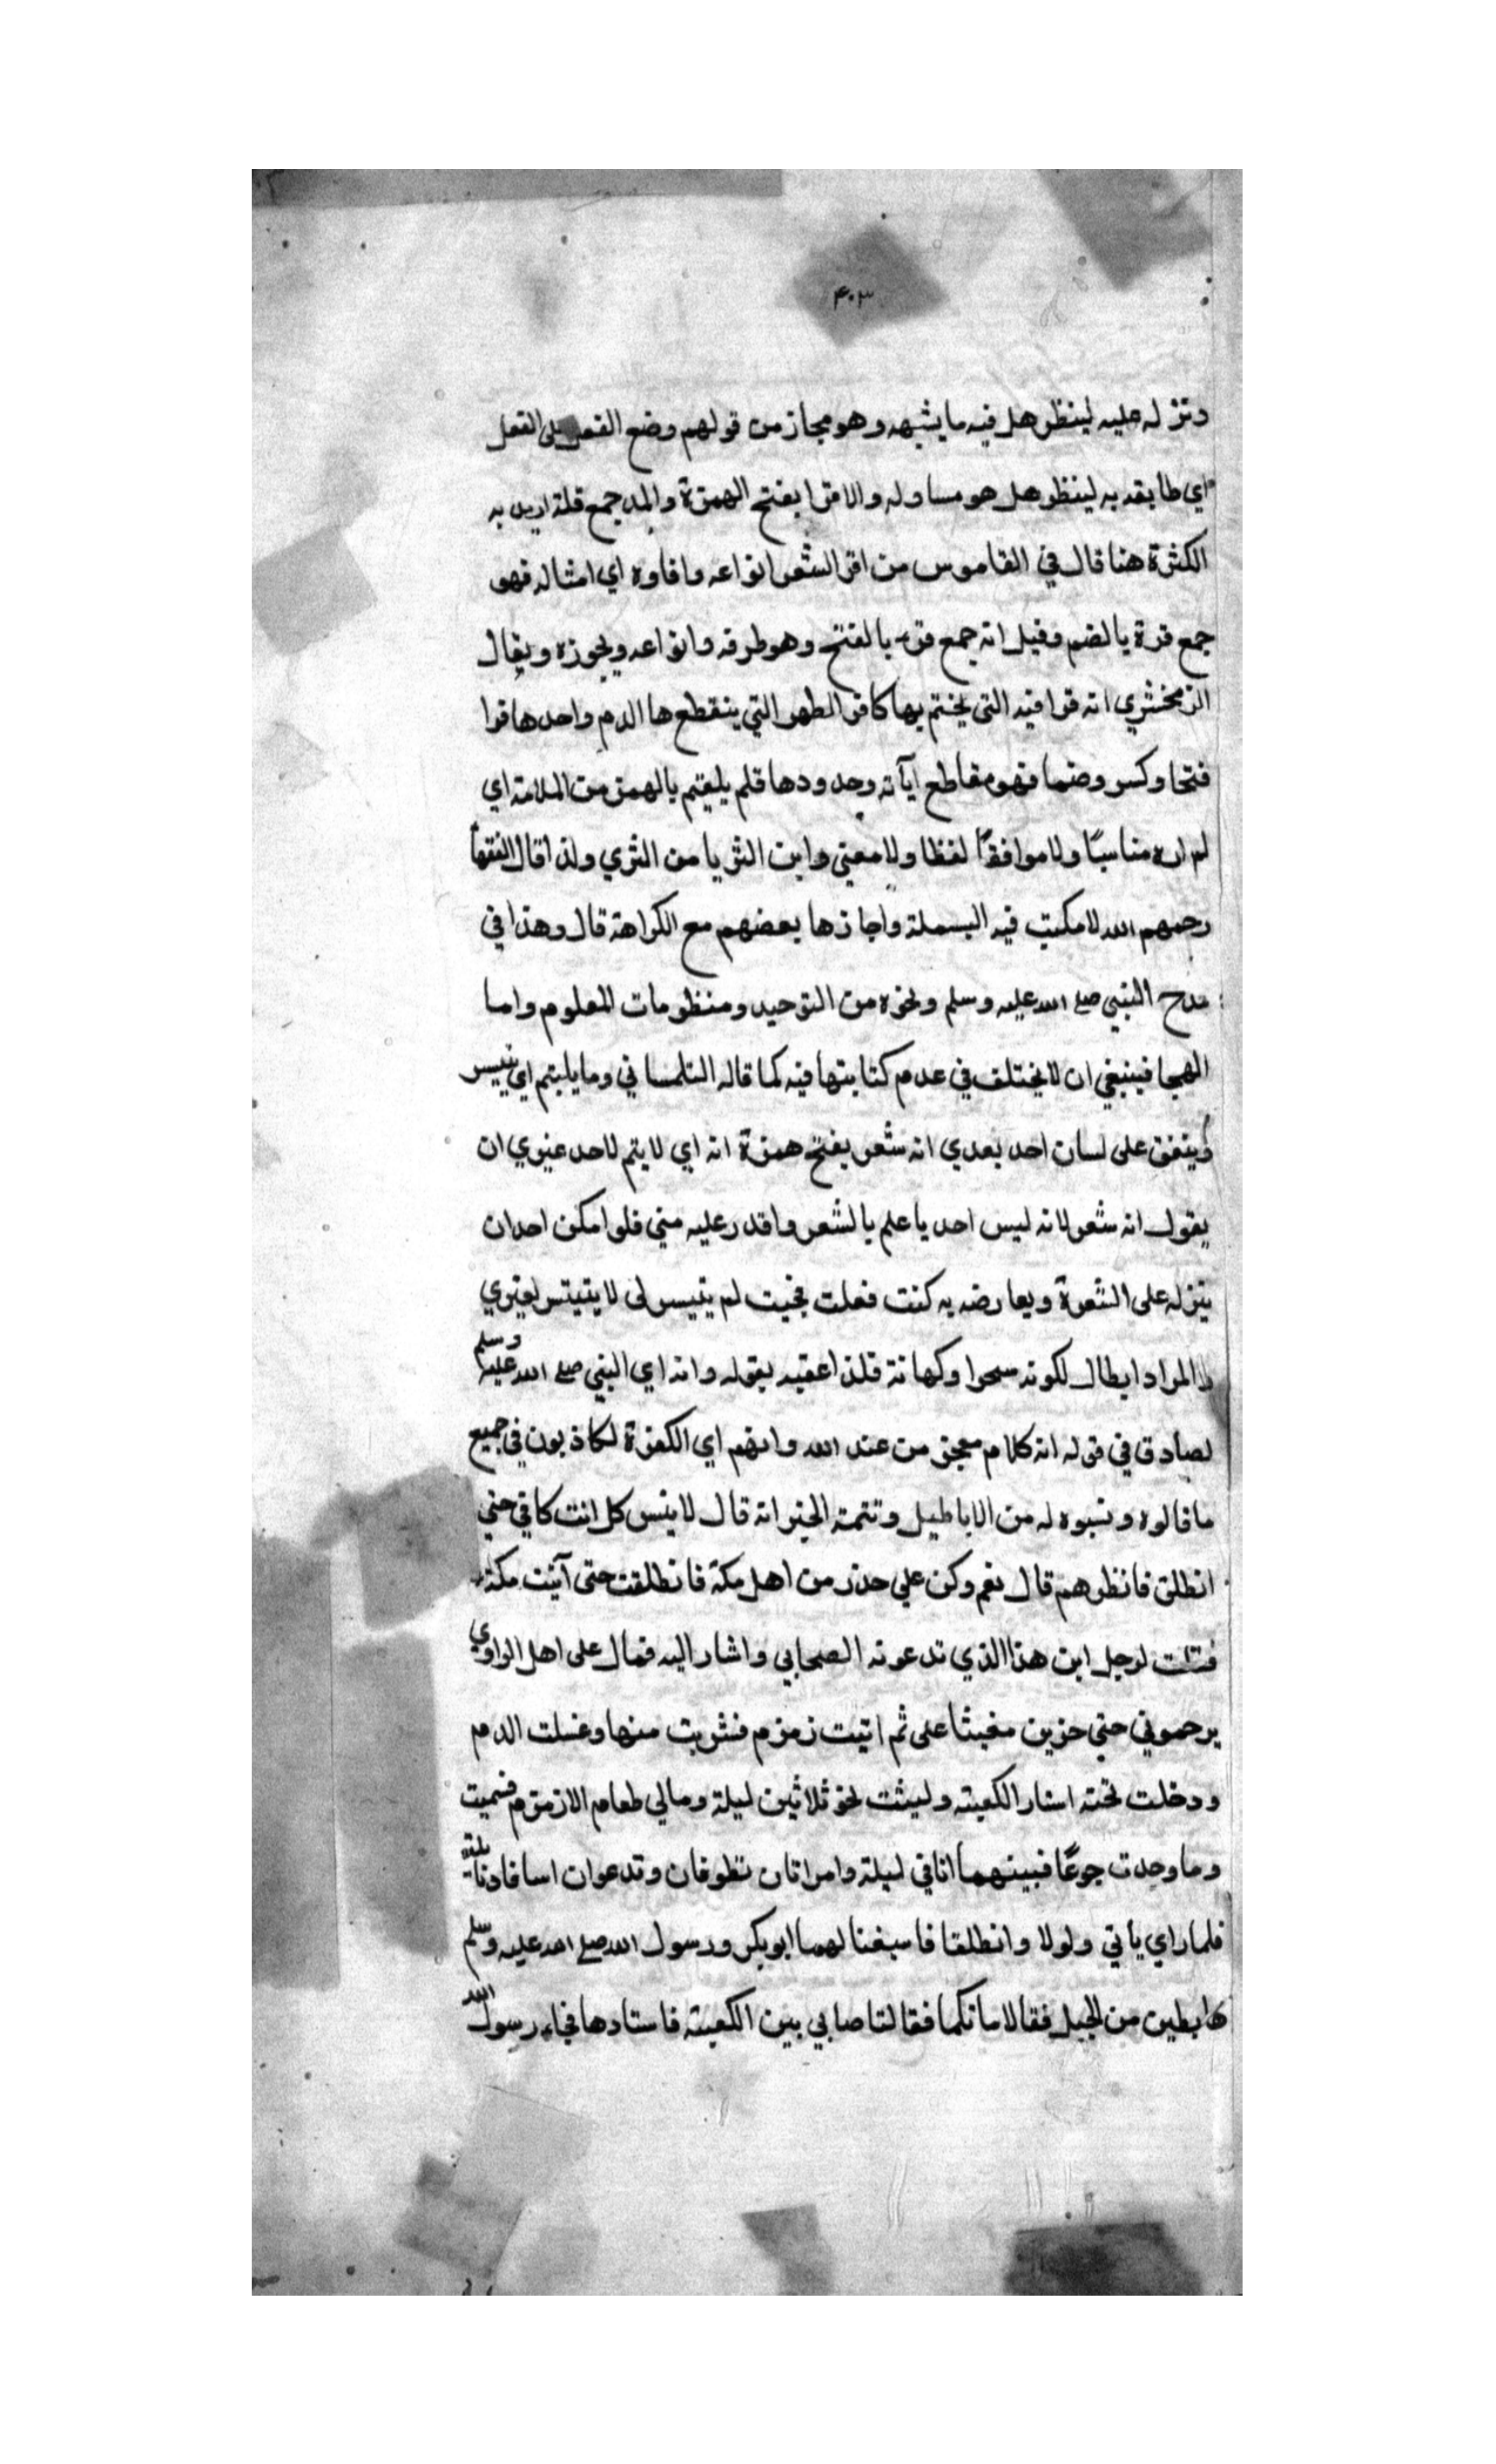 ٤٠٣
ونزله عليه لينظر هل فيه ما يشبهه وهو مجاز من قولهم وضع الفعل على الفعل
اي طابقه به لينظر هل هو مساو له والاقرا بفتح الهمزة والمد جمع قلة اريد به
الكثرة هنا قال في القاموس من اقر الشعر انواعه واقاوه اي امثاله فهو
جمع قرة بالضم وقيل انه جمع قرء بالفتح وهو طرقه وانواعه ويجوزه ويقال
الزمخشري انه قوافيه التى يختم بها كاقر الطهر التي ينقطع ها الدم واحدها قرا
فتحا وكسر وضما فهو مقاطع ايآته وحدودها قلم يلعتم بالهمز من الملامة اي
لم اره مناسبًا ولا موافقًا لفظا ولا معنى واين الثريا من الثري ولذا قال الفقهآ
رحمهم الله لا مكتب فيه البسملة واجازها بعضهم مع الكراهة قال وهذا في
مدح النبي صلى الله عليه وسلم ونحوه من التوحيد ومنظومات المعلوم واما
الهجا فينبغي ان لا يختلف في عدم كتابتها فيه كما قاله التلمساني وما يلىتم اي تيسر
ويتفق على لسان احد بعدي انه شعر بفتح همزة انه اي لا يتم لاحد غيري ان
يقول انه شعر لانه ليس احد يا علم بالشعر واقدر عليه مني فلو امكن احد ان
ينزله على الشعرة ويعارضه به كنت فعلت فحيت لم يتيسر لى لا يتيتسر لغيري
والمراد ابطال لكونه سحرا وكهانة فلذا عقبه بقوله وانه اي النبي صلى الله عليه وسلم
لصادق في قوله انه كلام معجز من عند الله وانهم اي الكفرة لكاذبون في جميع
ما قالوه ونسبوه له من الاباطيل وتتمة الخبر انه قال لا ينس كل انت كافي حتي
انطلق فانظر هم قال نعم وكن علي حذر من اهل مكة فانطلقت حتى آتيت مكة
فقلت لرجل اين هذا الذي تدعونه الصحابي واشار اليه فمال على اهل الوادي
يرحموني حتي حزين مغيثا على ثم اتيت زمزم فشربت منها وغسلت الدم
ودخلت تحته استار الكعبة ولبثت نحو ثلاثين ليلة ومالي طعام الا زمزم فسميت
وما وجدت جوعًا فبينهما انا في ليلة وامراتان تطوفان وتدعوان اسافا ونا يلة
فلما راي ياتي ولولا وانطلقا فاسبغنا لهما ابو بكر ورسول الله صلى الله عليه وسلم
هابطين من الجبل فقالا ما نكما فقالتا صابي بين الكعبة فاستادها فجاء رسول الله